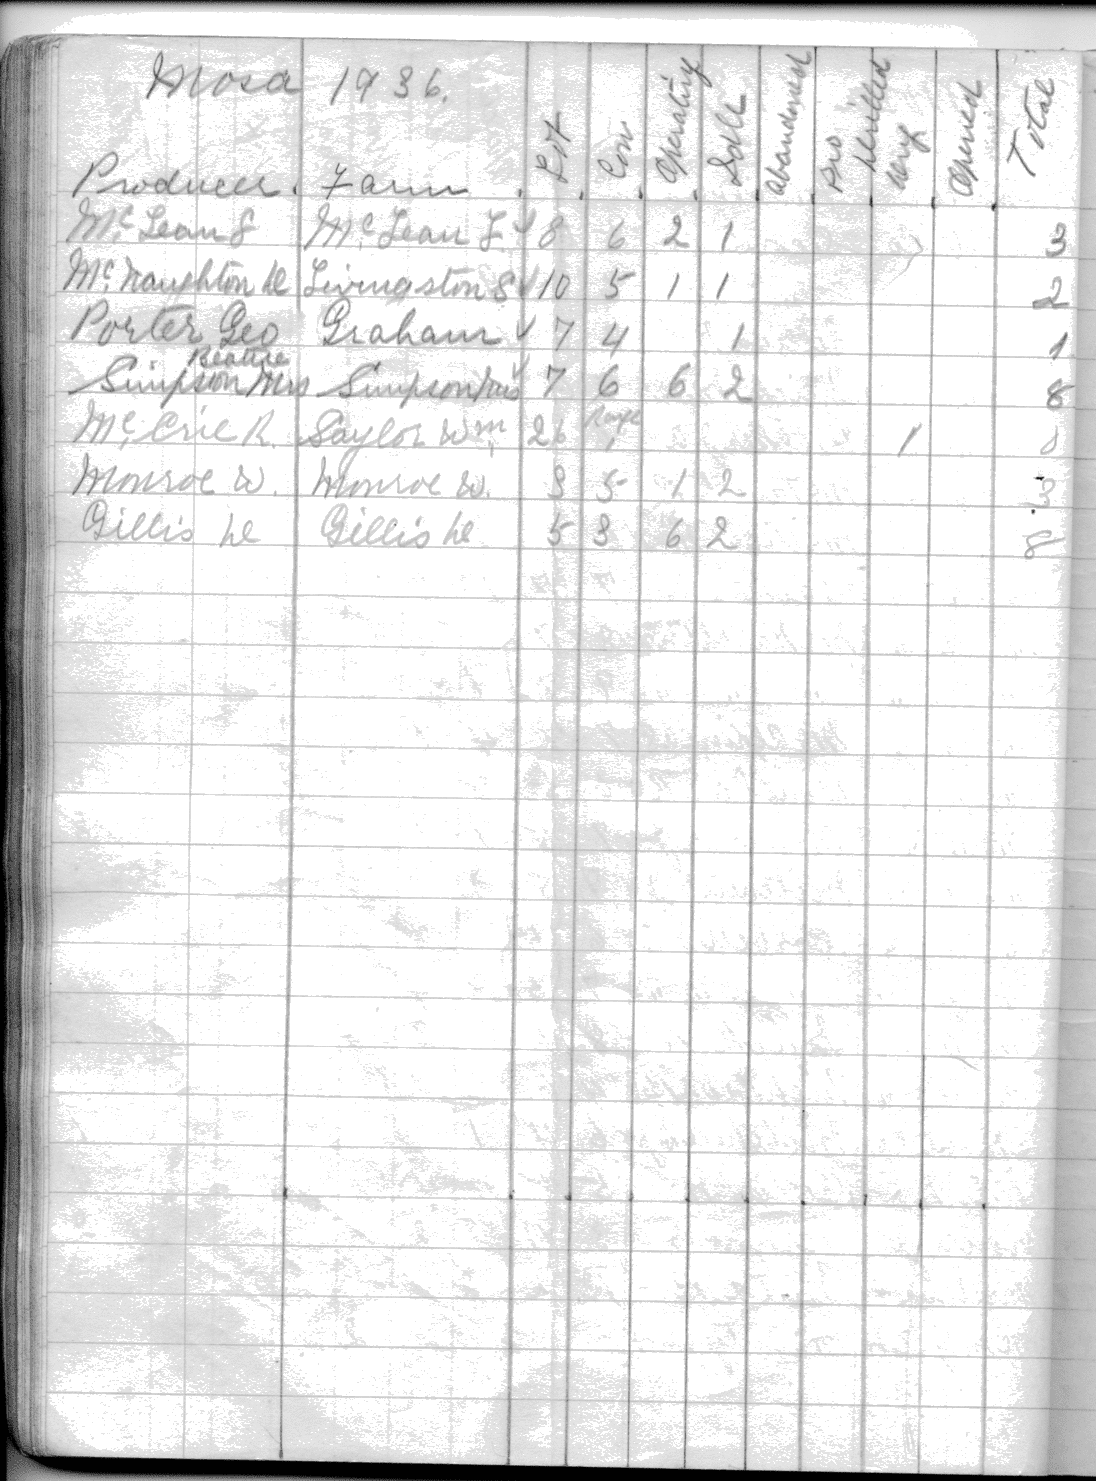 Mosa 1936.
Producer. Farm. Lot Con. Operating Idle Abandoned Pro Drilled Dry Opened Total
Mc. Lean S Mc. Lean F ✓ 8 6 2 1 3
Mc. Naughton D Livingston S ✓ 10 5 1 1 2
Porter Geo Graham ✓ 7 4 1 1
Beattie
Simpson Mrs Simpson Mrs ✓ 7 6 6 2 8
Mc. R. Saylor Wm 26 Range 1 1
Monroe W. Monroe W. 3 5 1 2 3
Gillis D Gillis D 5 3 6 2 8